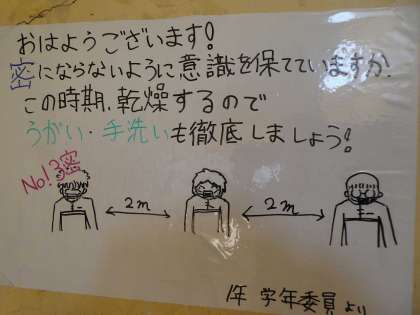 おはようございます!
密にならないように意識を保てていますか.
この時期、乾燥するので
うがい・手洗いも徹底しましょう!
No!3密
2m 2m
1年 学年委員より